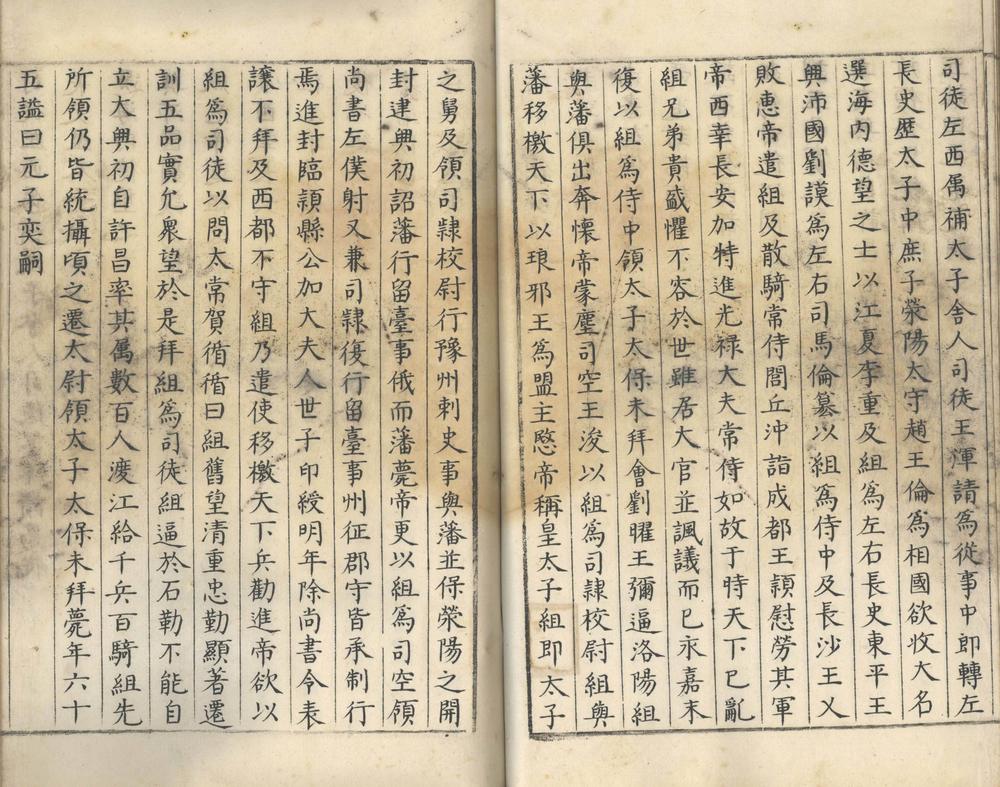 司徒左西属補太子舍人司徒王渾請為從事中郎轉左
長史歷太子中庶子滎陽太守趙王倫為相國欲收大名
選海内德望之士以江夏李重及組為左右長史東平王
興沛國劉謨為左右司馬倫篡以組為侍中及長沙王乂
敗惠帝遣組及散騎常侍閭丘沖詣成都王穎慰勞其軍
帝西幸長安加特進光禄大夫常侍如故于時天下已亂
組兄弟貴盛懼不容於世雖居大官並諷議而已永嘉末
復以組為侍中領太子太保未拜會劉曜王彌逼洛陽組
與藩俱出奔懷帝蒙塵司空王浚以組為司隷校尉組與
藩移檄天下以琅邪王為盟主愍帝稱皇太子組即太子
之舅及領司隷校尉行豫州刺史事與藩並保滎陽之開
封建興初詔藩行留臺事俄而藩薨帝更以組為司空領
尚書左僕射又兼司隷復行留臺事州征郡守皆承制行
焉進封臨潁縣公加大夫人世子印綬明年除尚書令表
讓不拜及西都不守組乃遣使移檄天下兵勸進帝欲以
組為司徒以問太常賀循循曰組舊望清重忠勤顯著遷
訓五品實允衆望於是拜組為司徒組逼於石勒不能自
立大興初自許昌率其属數百人渡江給千兵百騎組先
所領仍皆統攝頃之遷太尉領太子太保未拜薨年六十
五謚曰元子奕嗣